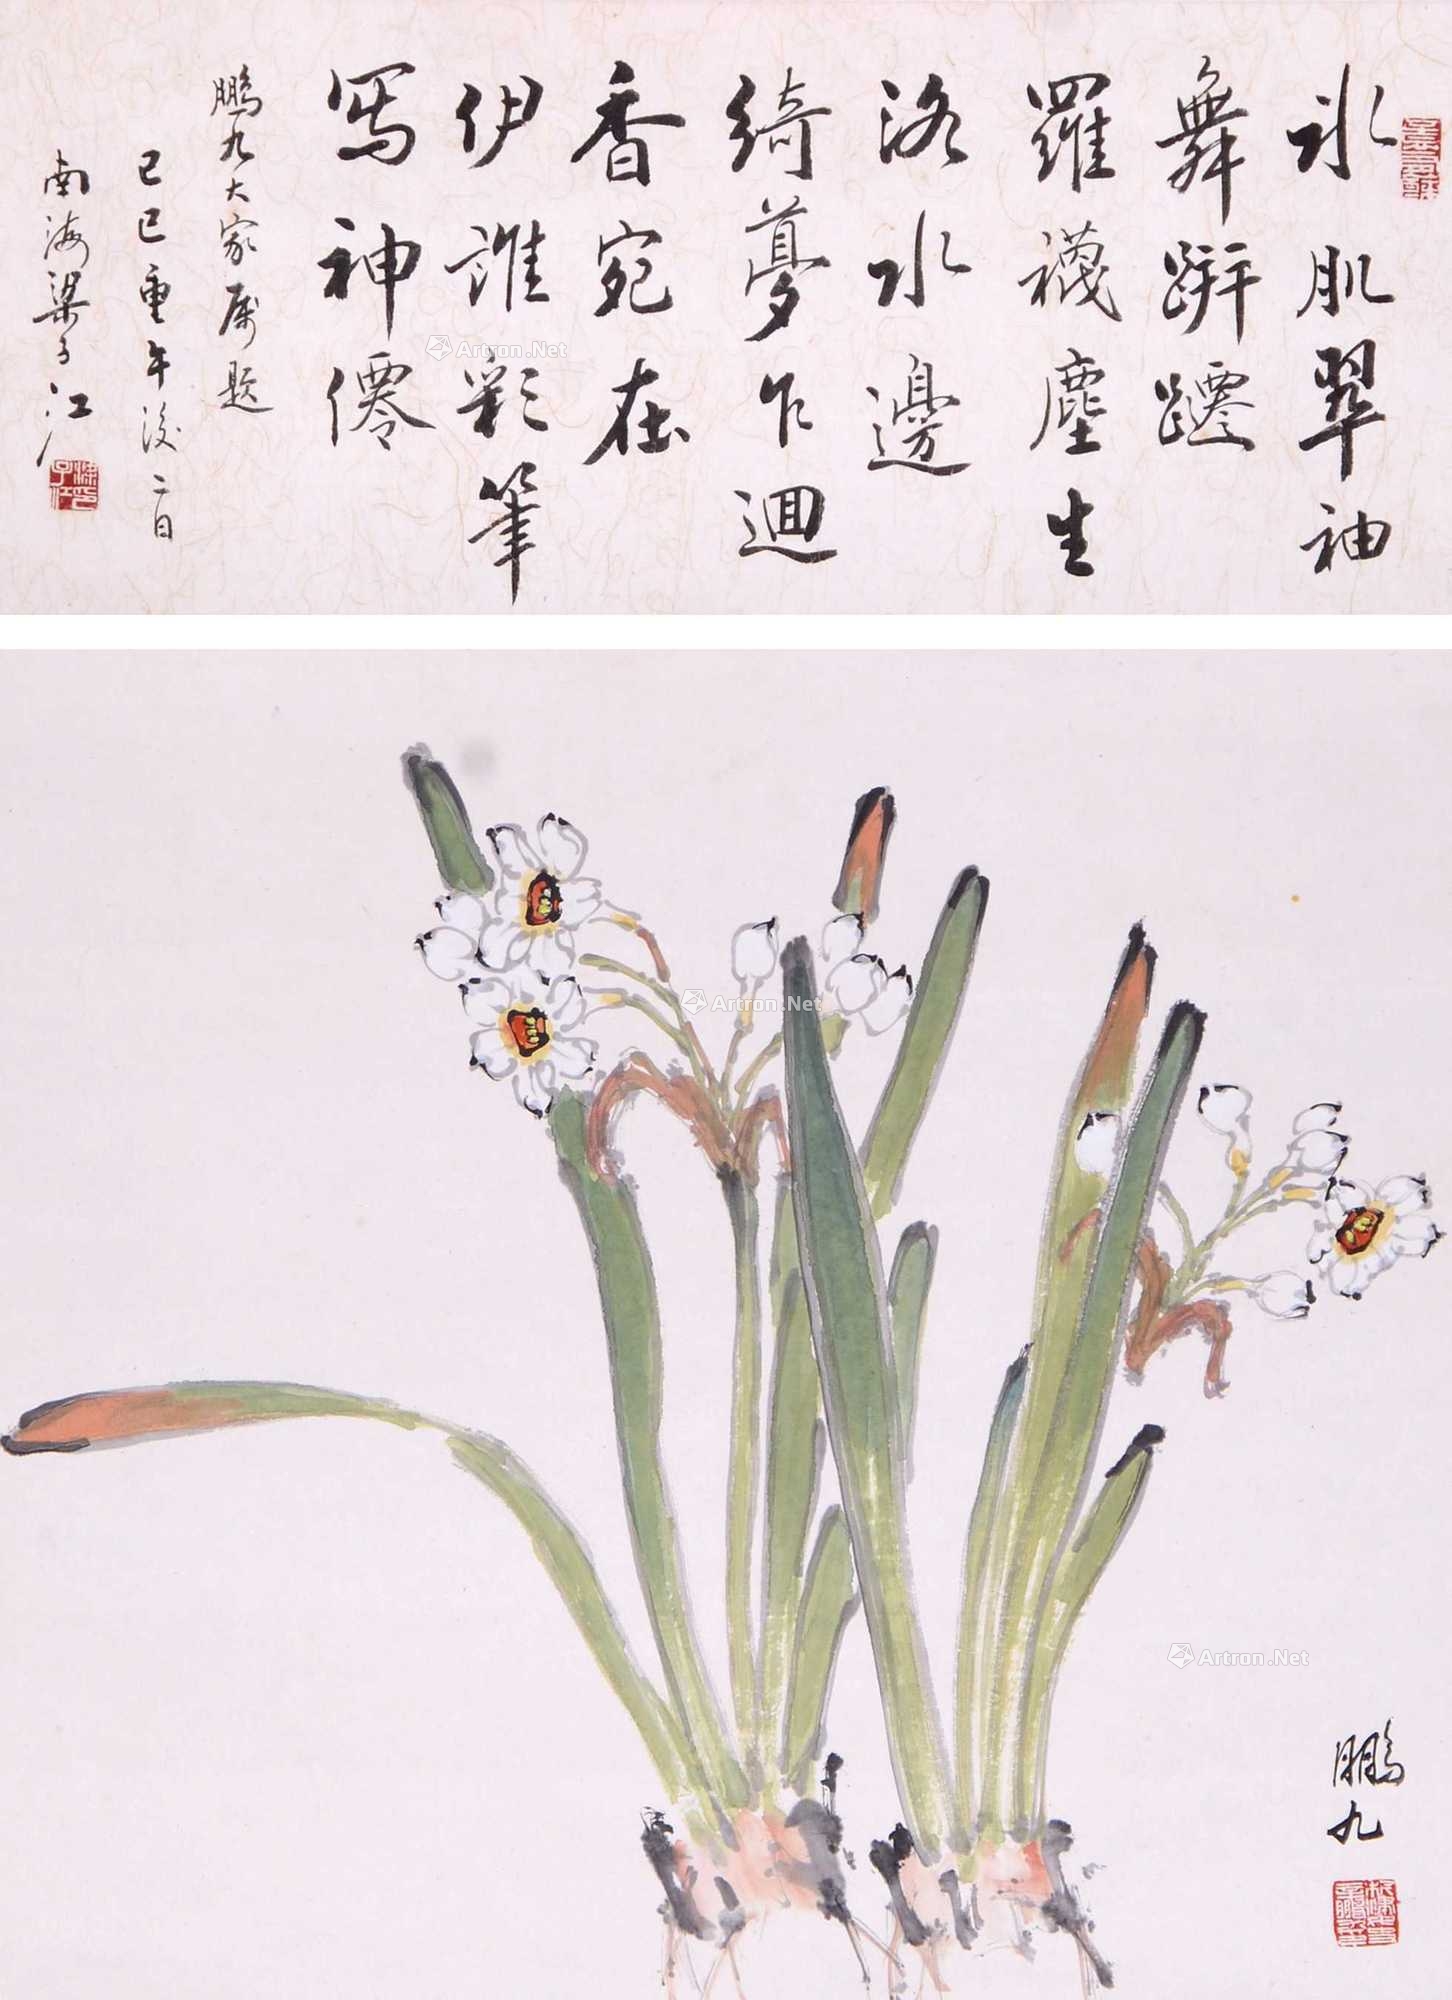 冰肌翠袖
舞跰躚
羅襪塵生
洛水邊
綺夢乍迴
香宛在
伊誰彩筆
写神僊
鵬九大家属題
己巳重午後二日
南海梁子江
梁子江印
鵬九
Artron.Net
Artron.Net
Artron.Net